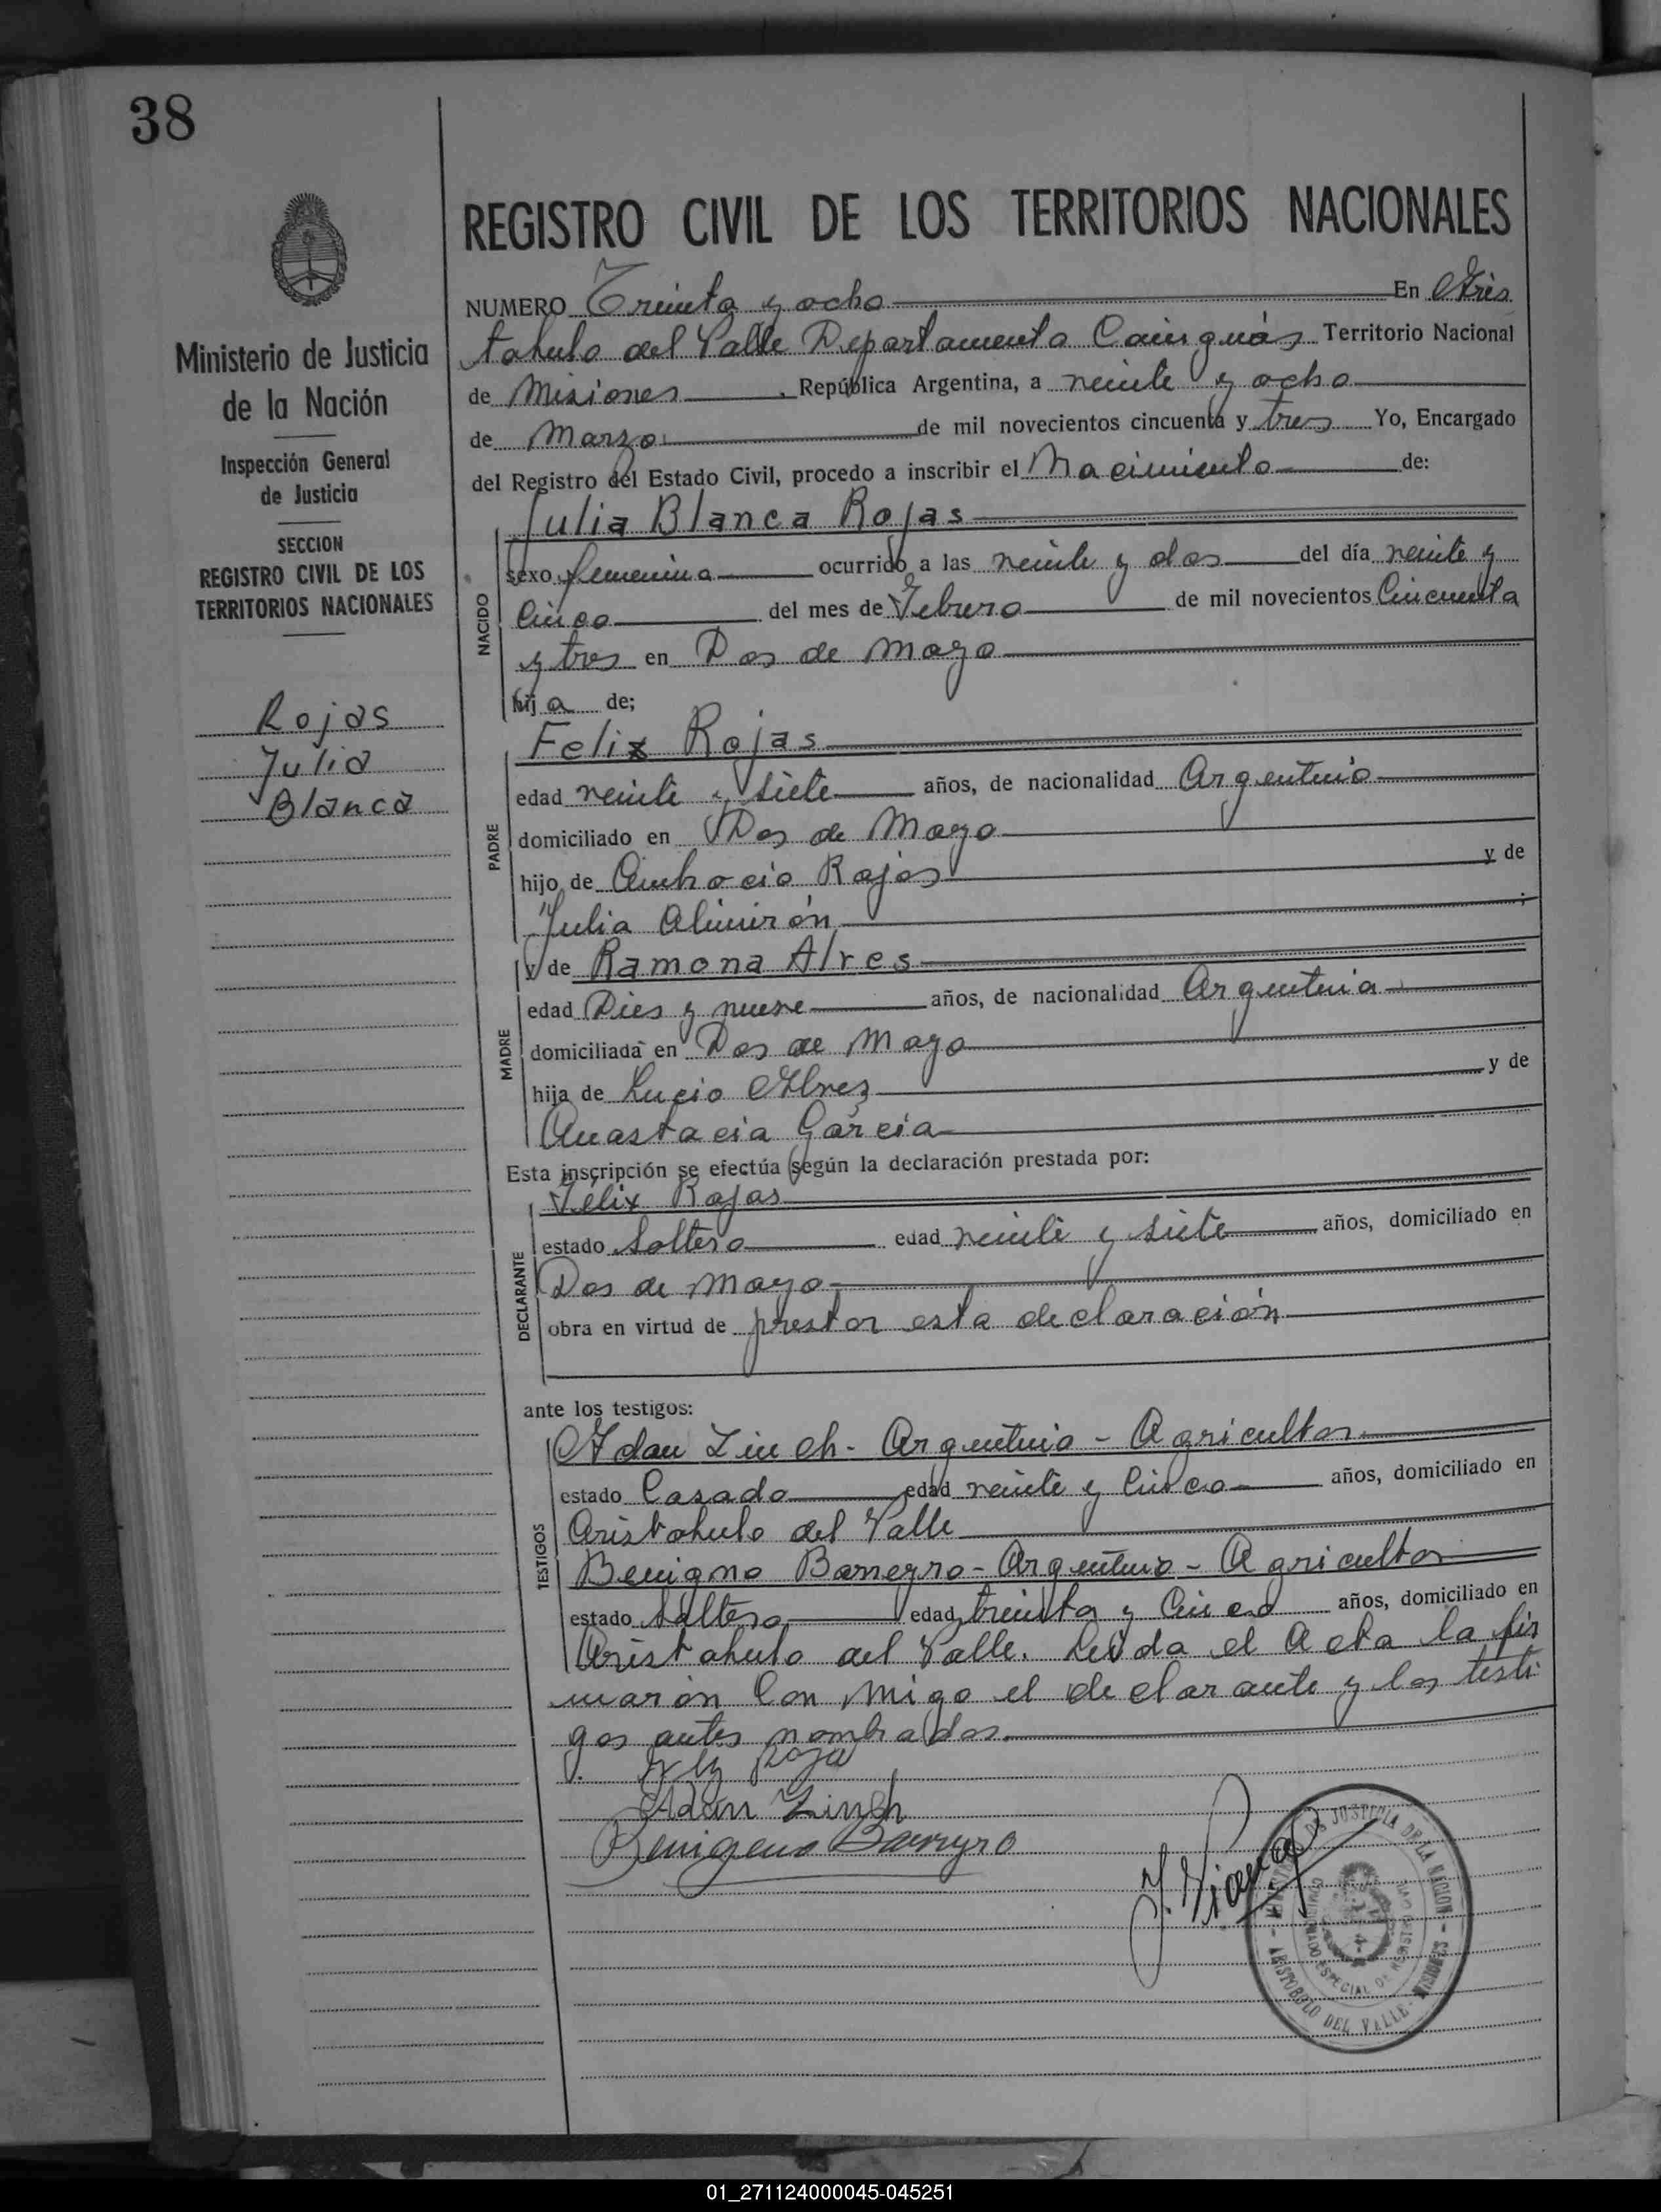 38
Ministerio de Justicia
de la Nación
Inspección General
de Justicia
SECCION
REGISTRO CIVIL DE LOS
TERRITORIOS NACIONALES
Rojas
Julia
Blanca
REGISTRO CIVIL DE LOS TERRITORIOS NACIONALES
NUMERO Treinta y ocho En Aris
tobulo del Valle Departamento Cainguás Territorio Nacional
de Misiones, República Argentina, a veinte y ocho
de Marzo de mil novecientos cincuenta y tres Yo, Encargado
del Registro del Estado Civil, procedo a inscribir el Nacimiento de:
NACIDO
Julia Blanca Rojas
sexo femenina ocurrido a las veinte y dos del día veinte y
Cinco del mes de Febrero de mil novecientos Cincuenta
y tres en Dos de Mayo
hija de;
PADRE
Felix Rojas
edad veinte y siete años, de nacionalidad Argentino
domiciliado en Dos de Mayo
hijo de Ambrocio Rojas y de
Julia Alimirón ;
MADRE
y de Ramona Alves
edad Dies y nueve años, de nacionalidad Argentina
domiciliada en Dos de Mayo
hija de Lucio Alvez y de
Anastacia Garcia
Esta inscripción se efectúa según la declaración prestada por:
DECLARANTE
Félix Rojas
estado Soltero edad veinte y siete años, domiciliado en
Dos de Mayo
obra en virtud de prestar esta declaración
ante los testigos:
TESTIGOS
Adan Linch - Argentino - Agricultor
estado Casado edad veinte y Cinco años, domiciliado en
Aristobulo del Valle
Benigno Barreyro - Argentino - Agricultor
estado Soltero edad treinta y Cinco años, domiciliado en
Aristobulo del Valle. Leida el Acta la fir
marón Con migo el declarante y los testi
gos antes nombrados.
Rojas
Adan Linch
Benigeno Barryro
DE JUSTICIA DE LA NACION - MISIONES
ARISTOBULO DEL VALLE
ESPECIAL DE REGISTRO CIVIL
01_271124000045-045251